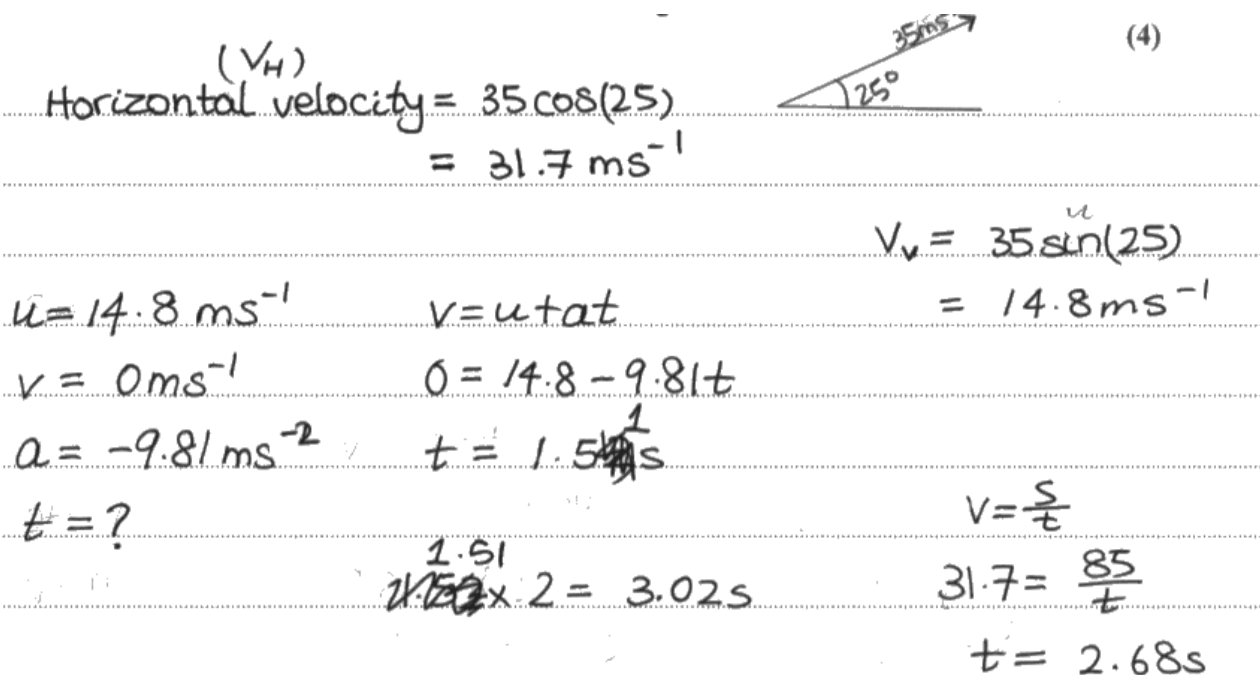 (4)
35ms⁻
25°
(V_H)
Horizontal velocity = 35cos(25)
= 31.7 ms⁻¹
V_v = 35sin(25)
= 14.8ms⁻¹
u = 14.8 ms⁻¹
v = 0ms⁻¹
a = -9.81 ms⁻²
t = ?
v = u + at
0 = 14.8 - 9.81t
t = 1.51s
1.51
x 2 = 3.02s
V = s/t
31.7 = 85/t
t = 2.68s